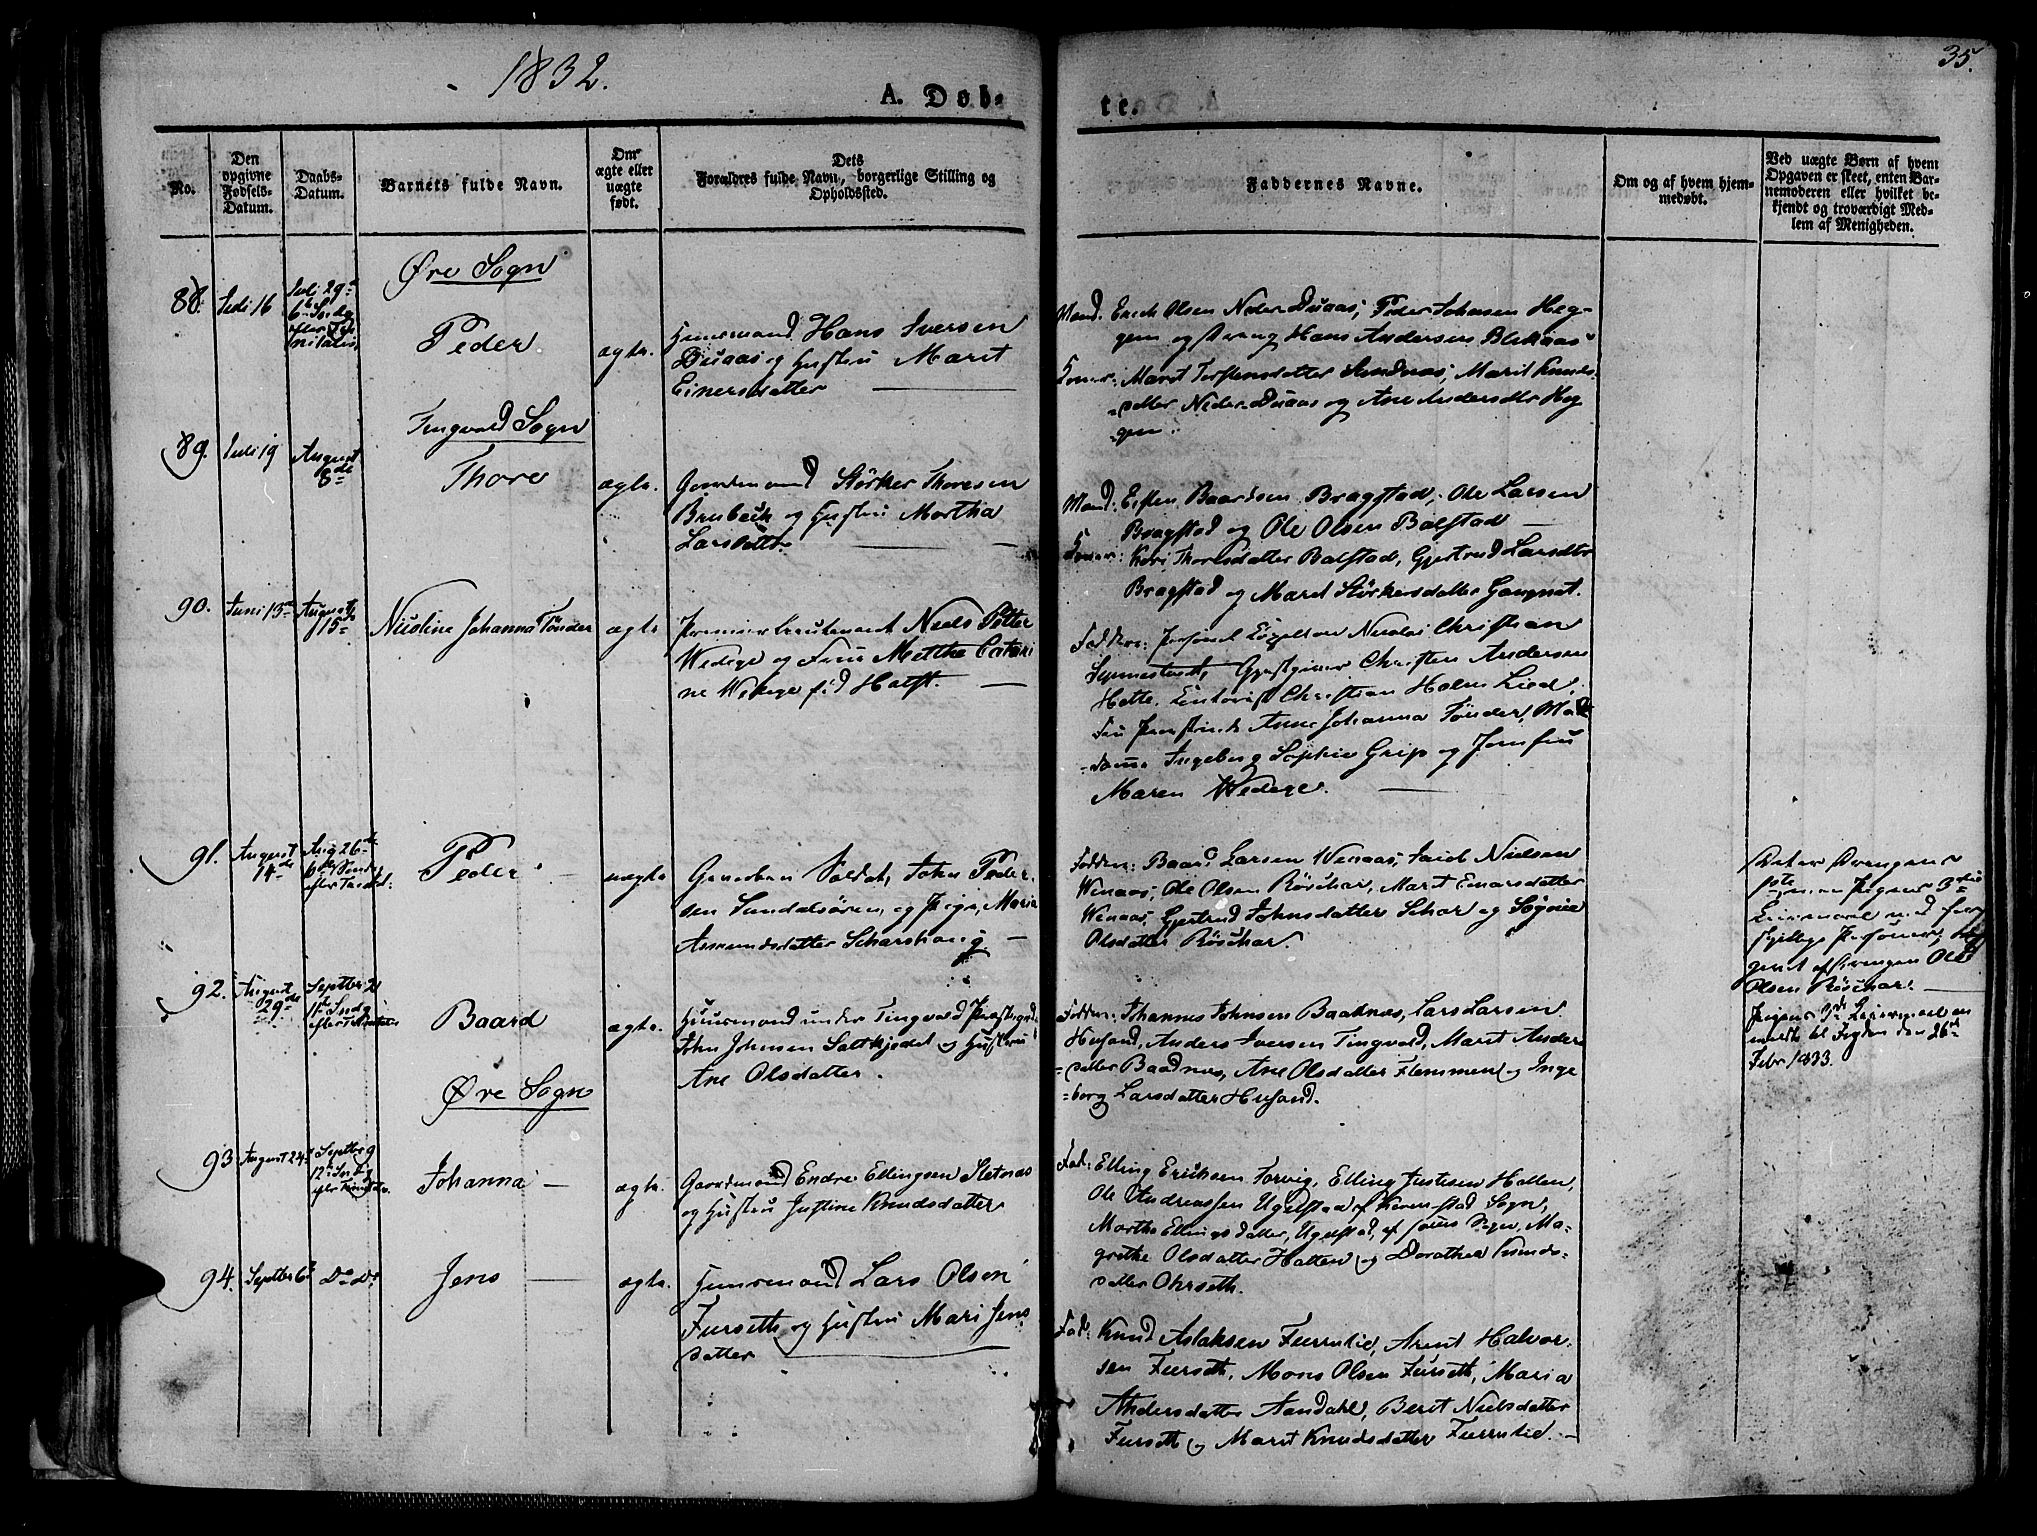 1832.
35.
A. Døb-
te.
No.
Den
opgivne
Fødsels-
Datum.
Daabs-
Datum.
Barnets fulde Navn.
Om
ægte eller
uægte
født.
Dets
Forældres fulde Navn, borgerlige Stilling og
Opholdssted.
Faddernes Navne.
Om og af hvem hjem-
medøbt.
Ved uægte Børn af hvem
Opgaven er skeet, enten Bar-
nemoderen eller hvilket be-
kjendt og troværdigt Med-
lem af Menigheden.
Øre Sogn
88.
Juli 16
Juli 29
6 Søndag
efter Tri
nitatis
Peder
ægte.
Huusmand Hans Iversen
Duaas og Hustru Marit
Einersdatter
Mand. Erich Olsen Neder-Duaas, Peder Johnsen Heg-
gem og Dreng Hans Andersen Blekaas
Koner: Marit Torstensdatter Sundnas, Marit Knuds-
datter Neder-Duaas og Ane Andersdtr Heg
gem.
Tingvold Sogn
89.
Juli 19
August
8de
Thore
ægte.
Gaardmand Störker Thoresen
Brubeck og Hustru Martha
Larsdatter
Mand: Eisten Baardsen Bragstad, Ole Larsen
Bragstad og Ole Olsen Balstad
Koner: Kari Thoresdatter Balstad, Gjertrud Larsdtr
Bragstad og Marit Störkersdatter Gangnat.
90.
Juni 13
August
15
Nicoline Johanna Tønder
ægte
Premierlieutenant Niels Petter
Wedege og Frue Metthe Catari
ne Wedege fød Holst.
Faddere: Personel Capellan Nicolai Christian
Synnestvedt, Gjestgiver Christen Andersen
Hatte, Christian Holm Lied,
Fru Provstinde Anne Johanna Tønder, Ma
dame Ingeborg Sophie Grip og Jomfru
Maren Wedege.
91.
August
14de
Aug 26de
Sønd
efter Trinit:
Peder
uægte
Gevorben Soldat, John Peder
sen Sundalsören, og Pige, Maria
Asmundsdatter Scharshaug
Faddere: Baard Larsen Wenaas, Jacob Nielsen
Wenaas, Ole Olsen Röschar, Marit Einarsdatter
Wenaas, Gjertrud Johnsdatter Schar og Sogneie
Olsdatter Röschar.
Pigens 3die
Leiermaal med for-
skjellige Personer,
af Drengen Ole
Olsen Röschar.
Pigens 3de Leiermaal an
meldt til Fogden den 26
Febr 1833.
92.
August
29de
Septbr 2
11te Sndg
efter Trinitatis
Baard
ægte.
Huusmand under Tingvold Præstegrd
John Johnsen Saltkjedet og Hustru
Ane Olsdatter.
Faddere: Johannes Johnsen Baadnas, Lars Larsen
Husand, Anders Iversen Tingvold, Marit Anders
datter Baadnas, Ane Olsdatter Flemmen og Inge
borg Larsdatter Husand.
Øre Sogn
93
August 24
Septbr 9
12 Sndg
efter Trinitatis
Johanna
ægte.
Gaardmand Endre Ellingsen Sletnas
og Hustru Justine Knudsdatter
Fad: Elling Eriksen Torvig, Elling Justesen Hallen,
Ole Andreassen Ugelstad af Qvernstad Sogn,
Martha Ellingsdatter, Ugelstad, af samme Sogn, Ma-
grethe Olsdatter Hatten og Dorothea Knuds-
datter Ohrseth.
94.
Septbr 6
Do Do
Jens
ægte.
Huusmand Lars Olsen
Furseth og Hustru Mari Jens
datter
Fad: Knud Aslaksen Furrulie, Arent Halvor-
sen Furseth, Mons Olsen Furseth, Maria
Andersdatter Aandahl, Berit Nielsdatter
Furseth og Marit Knudsdatter Furrulie.